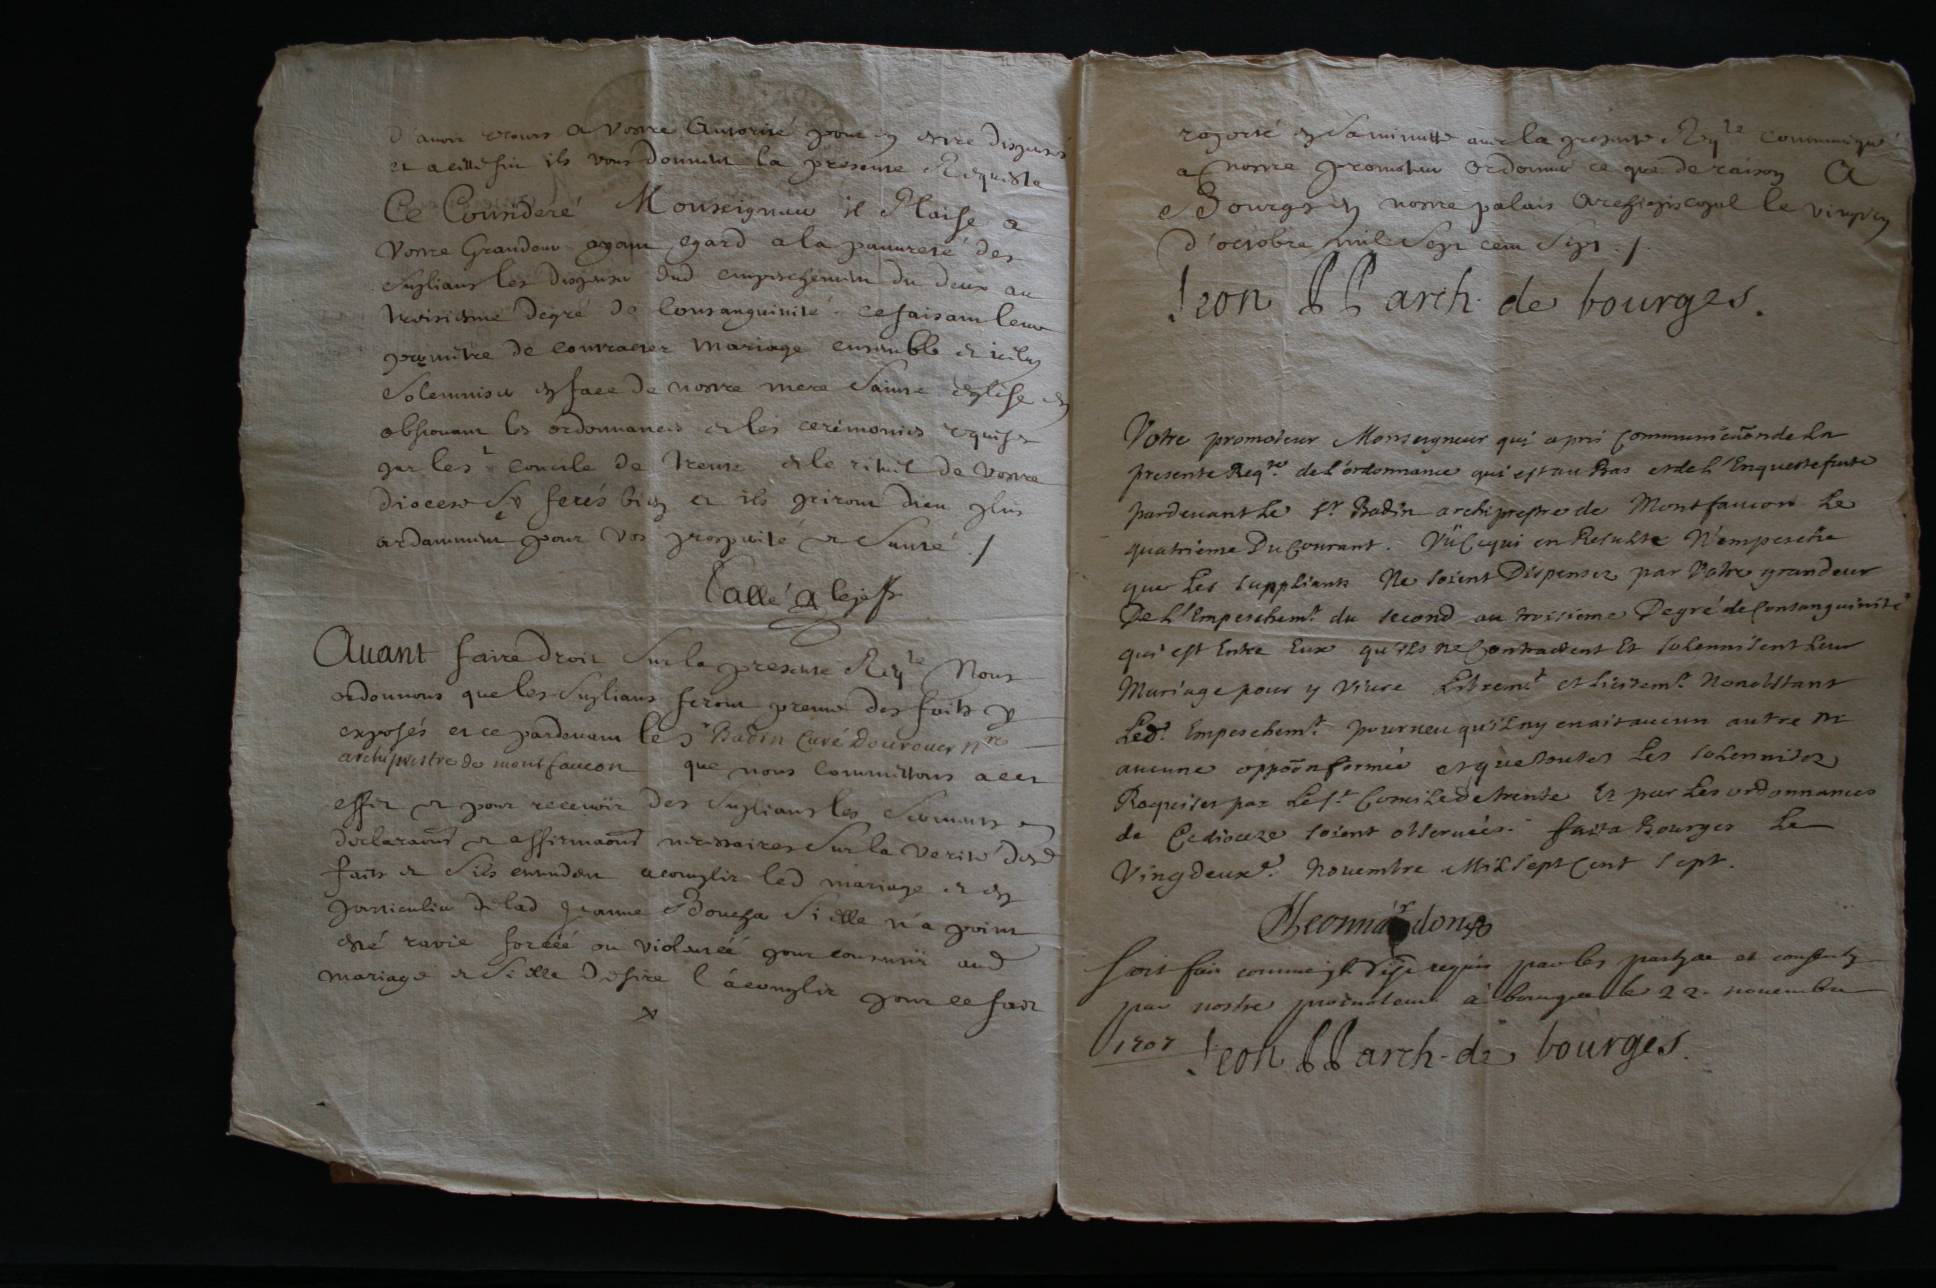 d'avoir recours a vostre Autorité pour en estre dispensés
et a cette fin ils vous donnent la presente Requeste
Ce Considéré Monseigneur il Plaise a
Vostre Grandeur ayant egard a la pauvreté des
Suplians les dispenser dud empeschement du deux au
troisiesme degré de Consanguinité ce faisant leur
permettre de contracter mariage ensemble et iceluy
solemniser en face de nostre mere Sainte eglise en
observant les ordonnances et les cerémonies requises
par le st concile de trente et le rituel de vostre
diocese Sy ferés bien et ils priront dieu plus
ardamment pour vos prosperité et santé ./
Avant faire droit sur la presente Reqte Nous
ordonnons que les Suplians feront preuve des faits y
exposés et ce pardevant le Sr Badin Curé Dourouer nre
archiprestre de montfaucon que nous committons a cet
effet et pour recevoir des Suplians les serments en
declaraons et affirmaons necessaires sur la verité desd
faits et s'ils entendent acomplir led mariage et en
particulier de lad Jeanne Boucha si elle n'a point
esté ravie forcéé ou violentéé pour consentir aud
mariage et si elle desire l'acomplir pour ce fait
raporté en sa minutte avec la presente Reqte communiqué
a nostre promoteur ordonner ce que de raison A
Bourges en nostre palais Archiepiscopal le
d'octobre mil Sept cent Sept ./.
Leon PP arch. de bourges.
Votre promoteur Monseigneur qui a pris Communicaõn de La
presente Reqte. de L'ordonnance qui est au bas et de L'Enqueste faite
pardevant Le Sr Badin archiprestre de Montfaucon Le
quatrieme Du Courant. Vü Ce qui en Resulte N'empesche
que Les suppliants Ne soient Dispensez par Votre grandeur
De L'Empeschemt. du second au troisieme Degré de Consanguinité
qui est Entre Eux qu'ils ne Contractent Et solennisent Leur
Mariage pour y Vivre Libremt et licitemt. Nonobstant
Led. Empeschemt. pourveu qu'il n'y en ait aucun autre ni
aucune oppoõn formée et que toutes Les solennitez
Requises par Le St. Concile de trente Et par Les ordonnances
de Ce dioceze soient observées. fait a Bourges Le
Vingdeuxe. Novembre Mil sept Cent sept.
Soit fait comme il est requis par les parties et consenty
par nostre promoteur à bourges le 22. novembre
1707 Leon PP arch. de bourges.